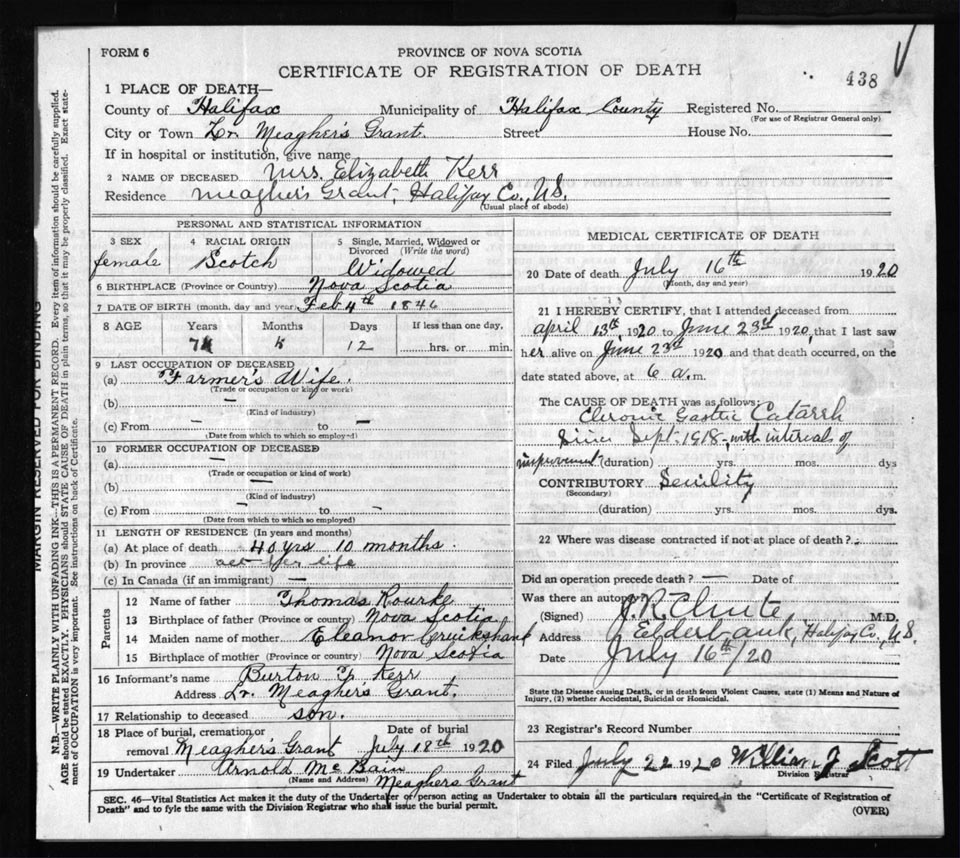 FORM 6
PROVINCE OF NOVA SCOTIA
CERTIFICATE OF REGISTRATION OF DEATH
438
1 PLACE OF DEATH—
County of Halifax Municipality of Halifax County Registered No.
(For use of Registrar General only)
City or Town Lr. Meagher's Grant. Street House No.
If in hospital or institution, give name
2 NAME OF DECEASED Mrs. Elizabeth Kerr
Residence Meagher's Grant, Halifax Co., N.S.
(Usual place of abode)
PERSONAL AND STATISTICAL INFORMATION
3 SEX female
4 RACIAL ORIGIN Scotch
5 Single, Married, Widowed or Divorced (Write the word) Widowed
6 BIRTHPLACE (Province or Country) Nova Scotia
7 DATE OF BIRTH (month, day and year) Feb 4th 1846
8 AGE Years Months Days If less than one day,
74 5 12 hrs. or min.
9 LAST OCCUPATION OF DECEASED
(a) Farmer's Wife.
(Trade or occupation or kind of work)
(b) —
(Kind of industry)
(c) From — to —
(Date from which to which so employed)
10 FORMER OCCUPATION OF DECEASED
(a) —
(Trade or occupation or kind of work)
(b) —
(Kind of industry)
(c) From — to —
(Date from which to which so employed)
11 LENGTH OF RESIDENCE (In years and months)
(a) At place of death 40 yrs 10 months.
(b) In province all her life
(c) In Canada (if an immigrant) —
Parents
12 Name of father Thomas Rourke
13 Birthplace of father (Province or country) Nova Scotia
14 Maiden name of mother Eleanor Cruickshank
15 Birthplace of mother (Province or country) Nova Scotia
16 Informant's name Burton Kerr
Address Lr. Meaghers Grant.
17 Relationship to deceased son.
18 Place of burial, cremation or Date of burial
removal Meagher's Grant July 18th 1920
19 Undertaker Arnold McBain
(Name and Address) Meaghers Grant
MEDICAL CERTIFICATE OF DEATH
20 Date of death July 16th 1920
(Month, day and year)
21 I HEREBY CERTIFY, that I attended deceased from
april 13th 1920 to June 23d 1920, that I last saw
her alive on June 23d 1920 and that death occurred, on the
date stated above, at 6 a.m.
The CAUSE OF DEATH was as follows:
Chronic Gastric Catarrh
Since Sept. 1918 - with intervals of
improvement (duration) yrs. mos. dys
CONTRIBUTORY Senility
(Secondary)
(duration) yrs. mos. dys.
22 Where was disease contracted if not at place of death?
Did an operation precede death? — Date of
Was there an autopsy?
(Signed) J.R. Chute M.D.
Address Elderbank, Halifax Co., N.S.
Date July 16th/20
State the Disease causing Death, or in death from Violent Causes, state (1) Means and Nature of
Injury, (2) whether Accidental, Suicidal or Homicidal.
23 Registrar's Record Number
24 Filed July 22 1920 William J Scott
Division Registrar
SEC. 46—Vital Statistics Act makes it the duty of the Undertaker or person acting as Undertaker to obtain all the particulars required in the "Certificate of Registration of
Death" and to fyle the same with the Division Registrar who shall issue the burial permit.
(OVER)
MARGIN RESERVED FOR BINDING
N.B.—WRITE PLAINLY WITH UNFADING INK—THIS IS A PERMANENT RECORD. Every item of information should be carefully supplied.
AGE should be stated EXACTLY. PHYSICIANS should STATE CAUSE OF DEATH in plain terms, so that it may be properly classified. Exact statement
of OCCUPATION is very important. See instructions on back of Certificate.